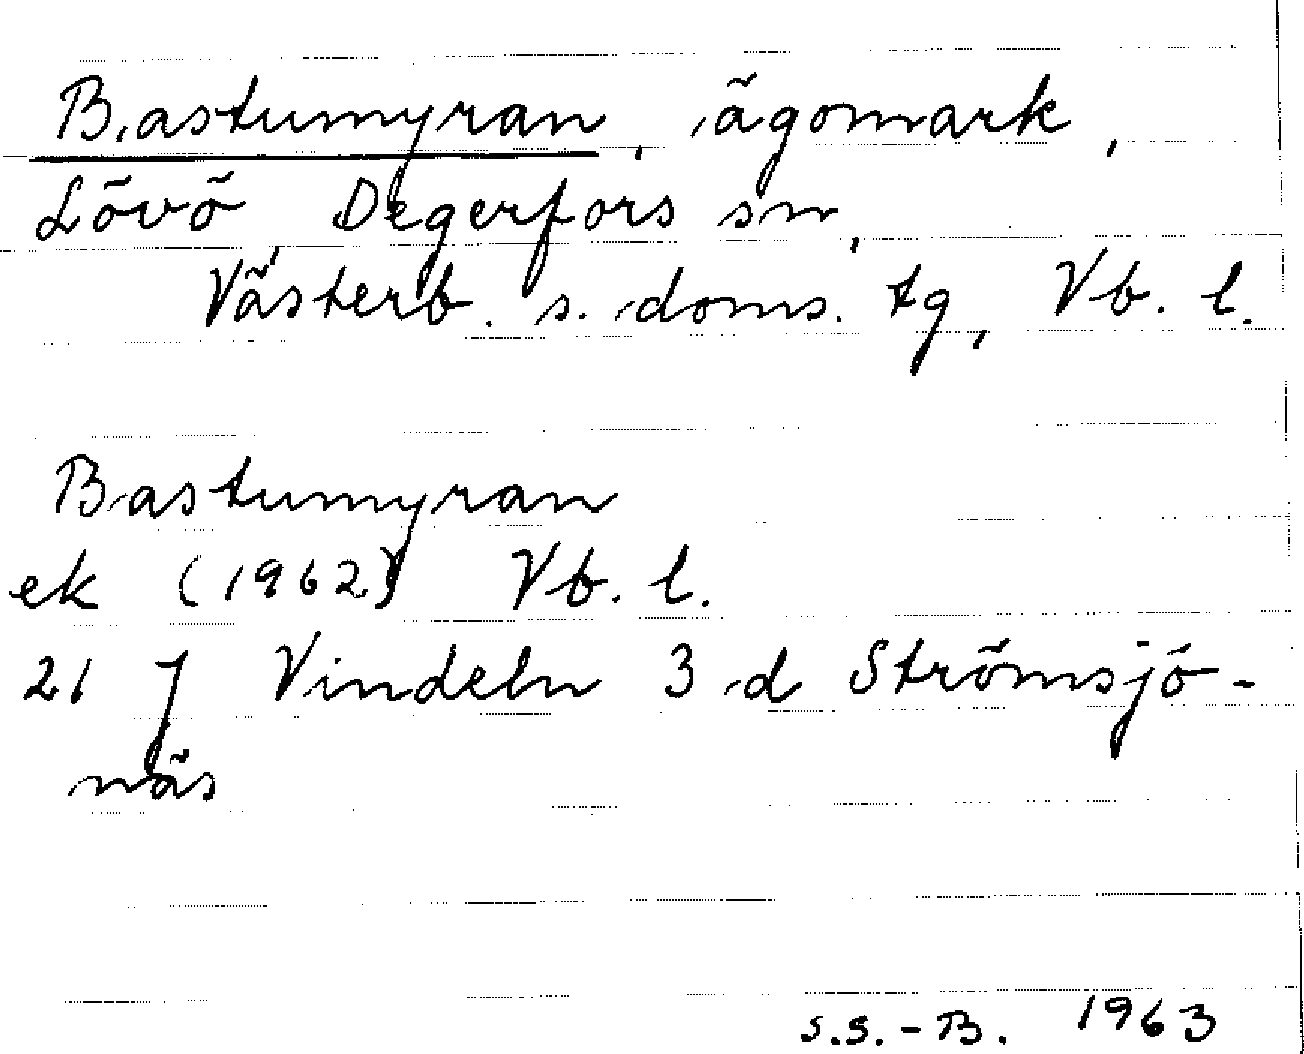 Bastumyran, ägomark,
Lövö, Degerfors sn,
Västerb. s. doms. tg, Vb. l.
Bastumyran
ek (1962) Vb. l.
21 J Vindeln 3 d Strömsjö-
näs
S.S.-B. 1963